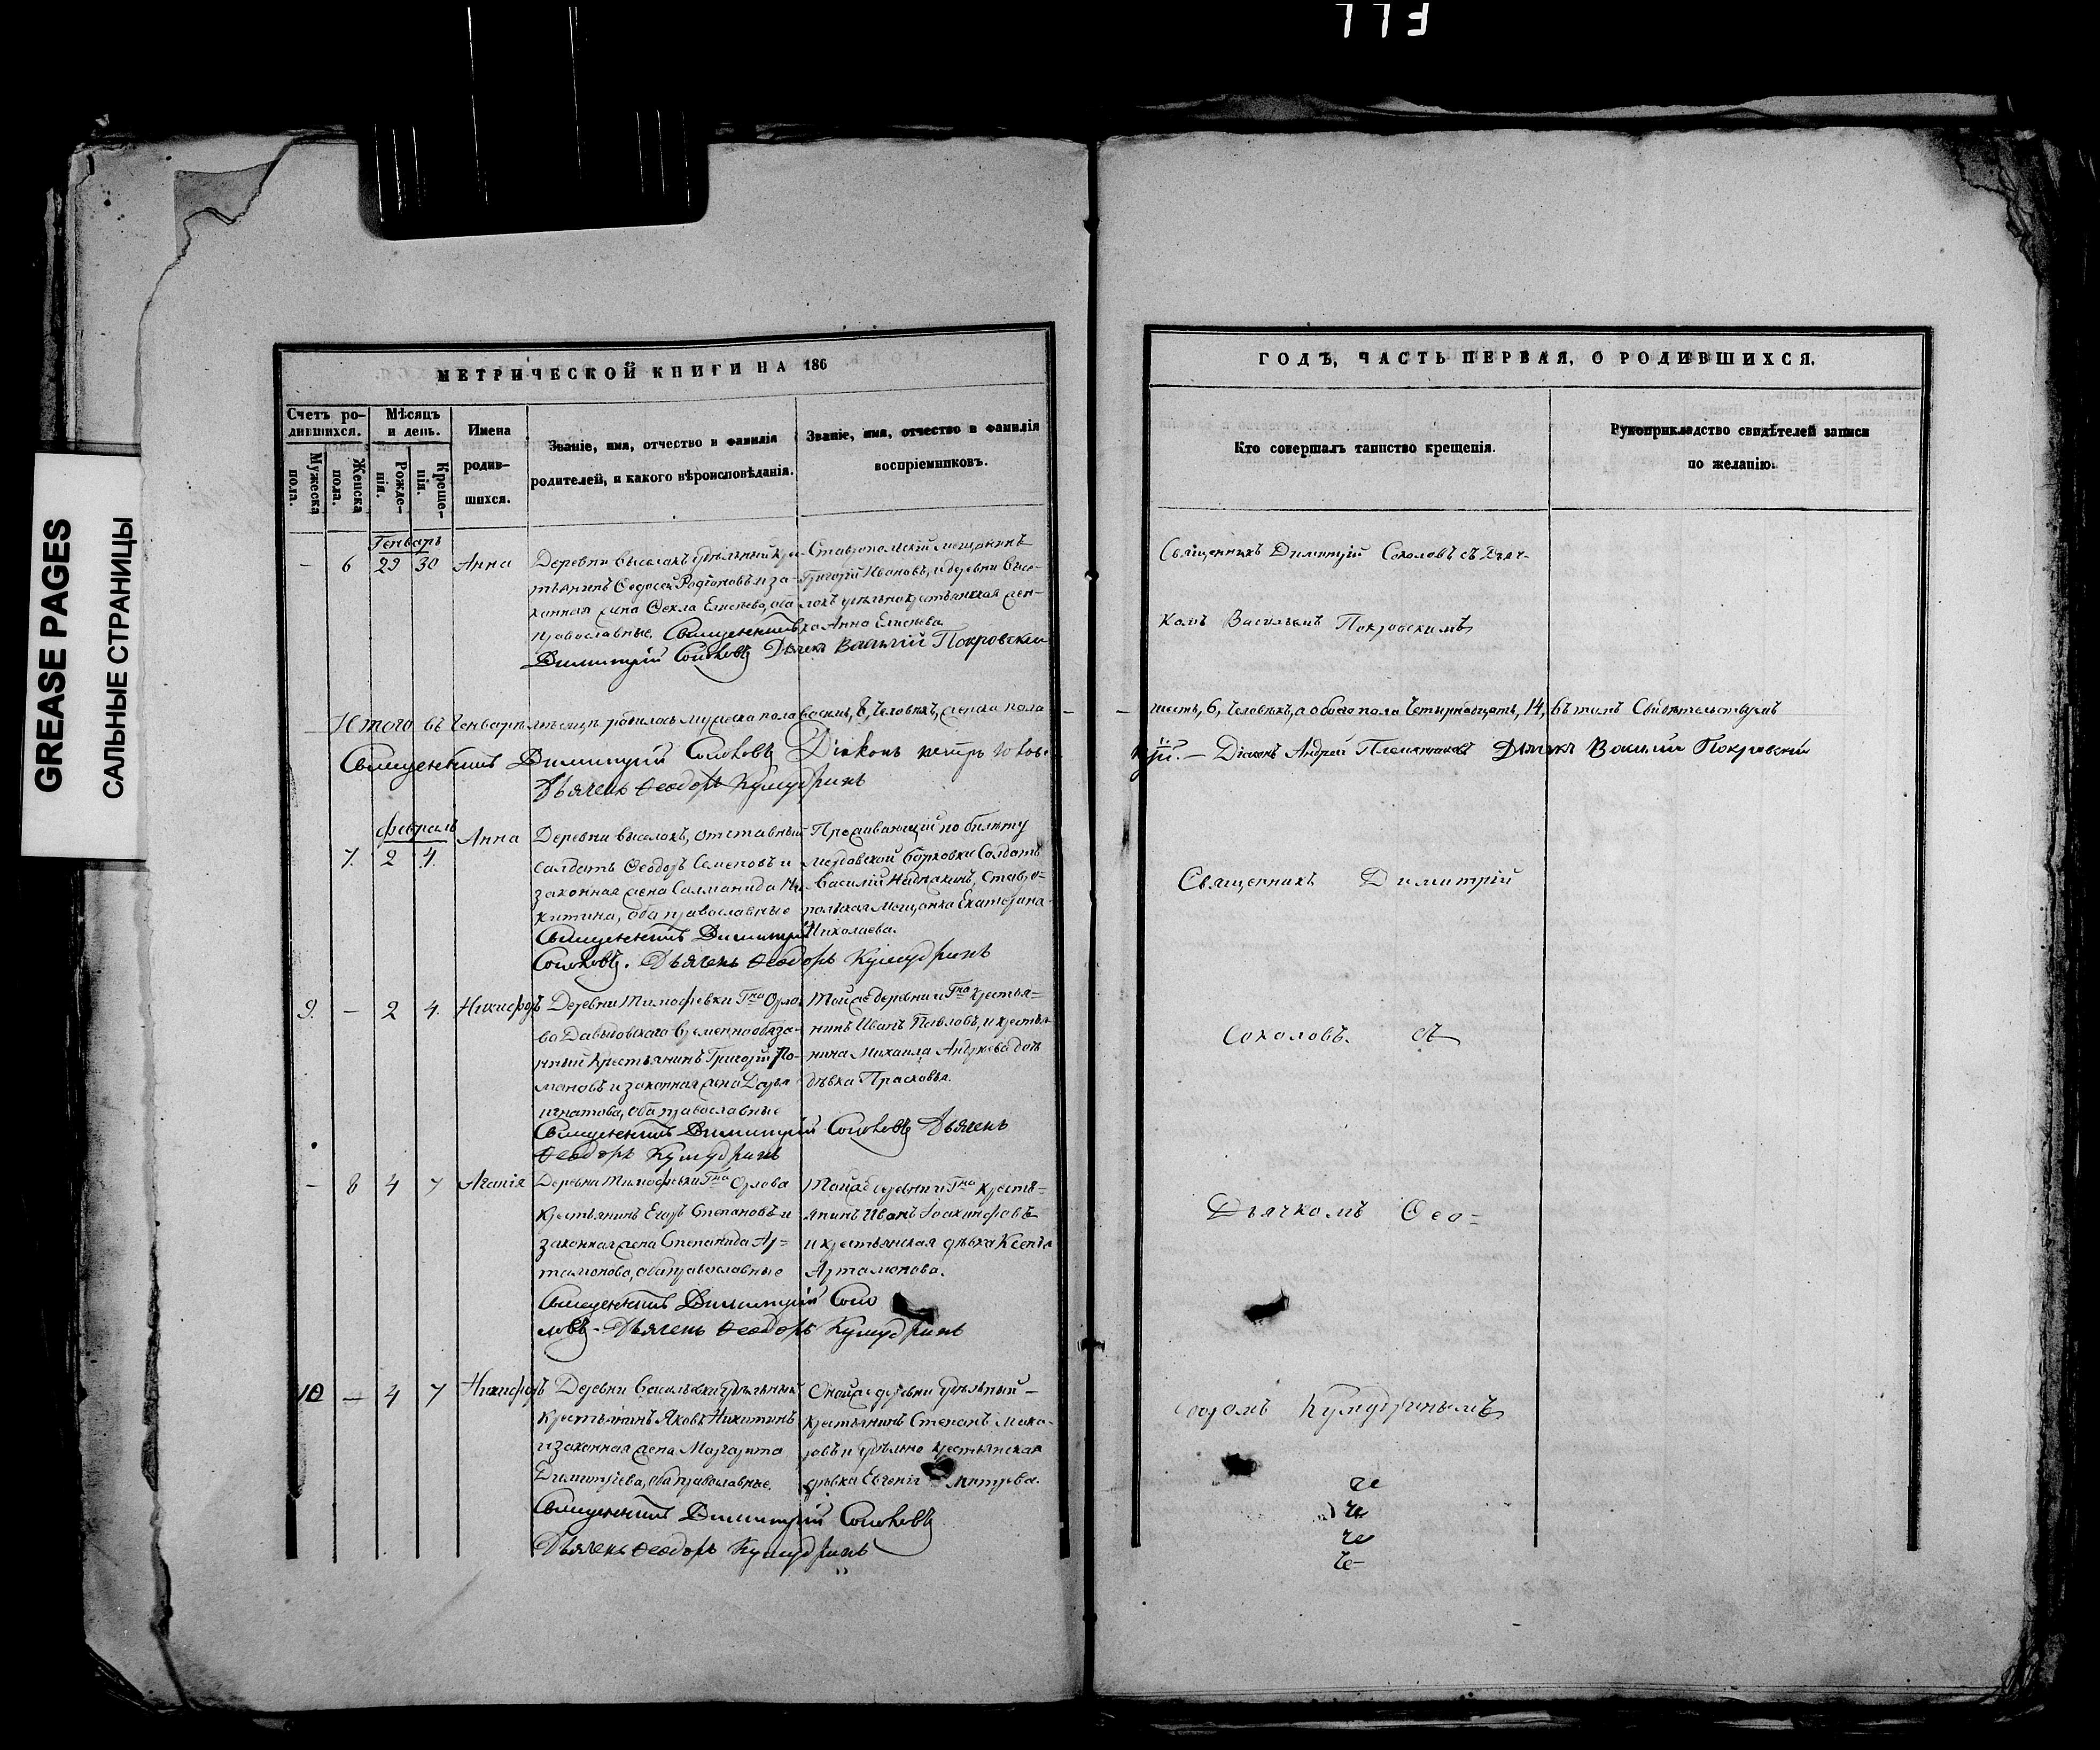 GREASE PAGES
САЛЬНЫЕ СТРАНИЦЫ
МЕТРИЧЕСКОЙ КНИГИ НА 186
Счетъ ро-
дившихся.
Мѣсяцъ
и день.
Мужеска
пола.
Женска
пола.
Рожде-
нія.
Креще-
нія.
Имена
родив-
шихся.
Званіе, имя, отчество и фамилія
родителей, и какого вѣроисповѣданія.
Званіе, имя, отчество и фамилія
воспріемниковъ.
Генварь
— 6 29 30 Анна
Деревни Выселокъ удѣльный кре-
стьянинъ Ѳедосей Родіоновъ и за-
конная жена Ѳекла Елисѣева, оба
православные. Священникъ
Димитрій Соколовъ Дьячекъ Василій Покровскій
Ставропольскій мещанинъ
Григорій Ивановъ, и деревни Высе-
локъ удѣльнокрестьянская жен-
ка Анна Елисѣева
Итого въ Генварѣ мѣсяцѣ родилось мужеска пола восемь, 8, человѣкъ, женска пола
Священникъ Димитрій Соколовъ Діаконъ
Дьячекъ Ѳеодоръ Кумудринъ
Февраль
7. 2 4. Анна
Деревни Выселокъ, отставный
салдатъ Ѳеодоръ Семеновъ и
законная жена Саломанида Ни-
китина, оба православные
Священникъ Димитрій
Соколовъ. Дьячекъ Ѳеодоръ Кумудринъ
Проживающій по билету
Мордовской Борковки Солдатъ
Василій, Ставро-
польская Мещанка Екатерина
Николаева.
9. — 2 4. Никифоръ
Деревни Тимофѣевки Гна Орло-
ва Давыдовскаго временнообяза-
нный крестьянинъ Григорій Ро-
мановъ и законная жена Дарья
Игнатова, оба православные
Священникъ Димитрій Соколовъ Дьячекъ
Ѳеодоръ Кумудринъ
Тойже деревни и Гна крестья-
нинъ Иванъ Павловъ, и крестья-
нина Михаила Андреева дочь
дѣвка Прасковья.
— 8 4 7 Агапія
Деревни Тимофѣевки Гна Орлова
Крестьянинъ Егоръ Степановъ и
законная жена Степанида Ар-
тамонова, оба православные
Священникъ Димитрій Соко
ловъ - Дьячекъ Ѳеодоръ Кумудринъ
Тойже деревни и Гна крестья-
янинъ Иванъ Іоакинфовъ
и крестьянская дѣвка Ксенія
Артамонова.
10 — 4 7 Никифоръ
Деревни Васильевки удѣльный
крестьянинъ Яковъ Никитинъ
и законная жена Маргарита
Димитріева, оба православные.
Священникъ Димитрій Соколовъ
Дьячекъ Ѳеодоръ Кумудринъ
Тойже деревни удѣльный
крестьянинъ Степанъ Мака-
ровъ и удѣльно крестьянская
дѣвка Евгенія
ГОДЪ, ЧАСТЬ ПЕРВАЯ, О РОДИВШИХСЯ.
Кто совершалъ таинство крещенія.
Рукоприкладство свидѣтелей записи
по желанію.
Священникъ Димитрій Соколовъ съ Дьяч-
комъ Васильемъ Покровскимъ
шесть, 6, человѣкъ, а обоего пола четырнадцать, 14, въ томъ свидѣтельствуемъ
Діаконъ Андрей Племянниковъ Дьячекъ Василій Покровскій
Священникъ Димитрій
Соколовъ. съ
Дьячкомъ Ѳео-
доромъ Кумудринымъ